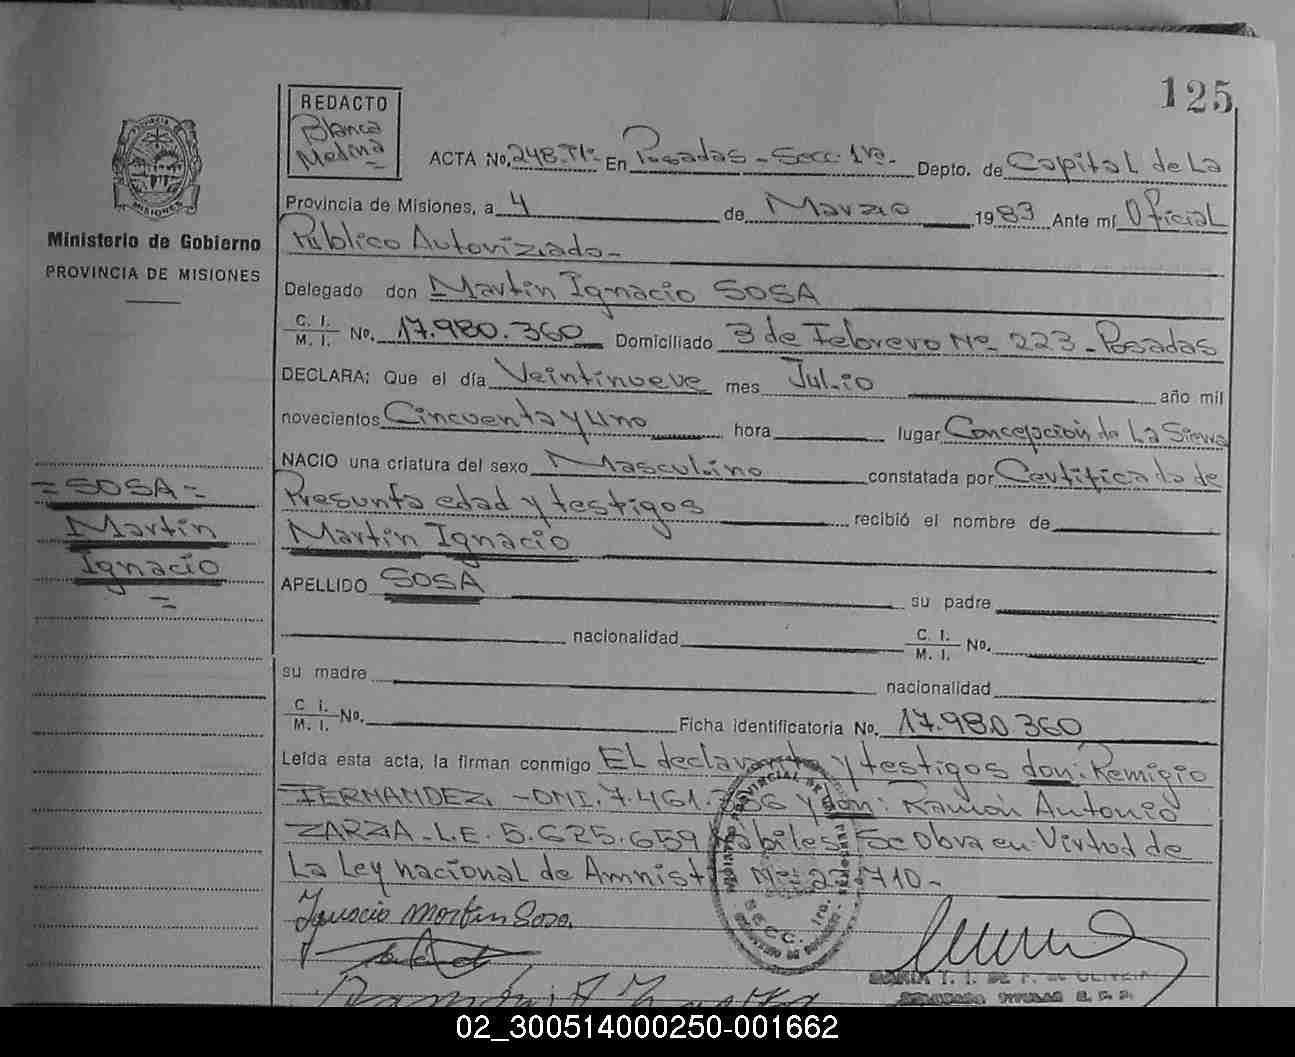 125
REDACTO
Blanca
Medina
ACTA No. 248. Tº. En Posadas - Secc. 1ra. Depto. de Capital de La
Provincia de Misiones, a 4 de Marzo 1983 Ante mí Oficial
Publico Autoriziado -
Delegado don Martin Ignacio SOSA
C. I.
M. I. No. 17.980.360 Domiciliado 3 de Febrero Nº 223 - Posadas
DECLARA: Que el día Veintinueve mes Julio año mil
novecientos Cincuenta y Uno hora lugar Concepción de La Sierra
NACIO una criatura del sexo Masculino constatada por Certificado de
Presunta edad y testigos recibió el nombre de
Martin Ignacio
APELLIDO SOSA su padre
nacionalidad C. I.
M. I. No.
su madre nacionalidad
C. I.
M. I. No. Ficha identificatoria No. 17.980.360
Leída esta acta, la firman conmigo El declarante y testigos don: Remigio
FERNANDEZ. - DNI. 7.461. y don: Ramón Antonio
ZARZA - L.E. 5.625.659 Se Obra en Virtud de
La Ley nacional de Amnist Nº: 710 -
Ignacio Martin Sosa
PROVINCIA
MISIONES
Ministerio de Gobierno
PROVINCIA DE MISIONES
= SOSA =
Martin
Ignacio
=
SECC. 1ra.
02_300514000250-001662